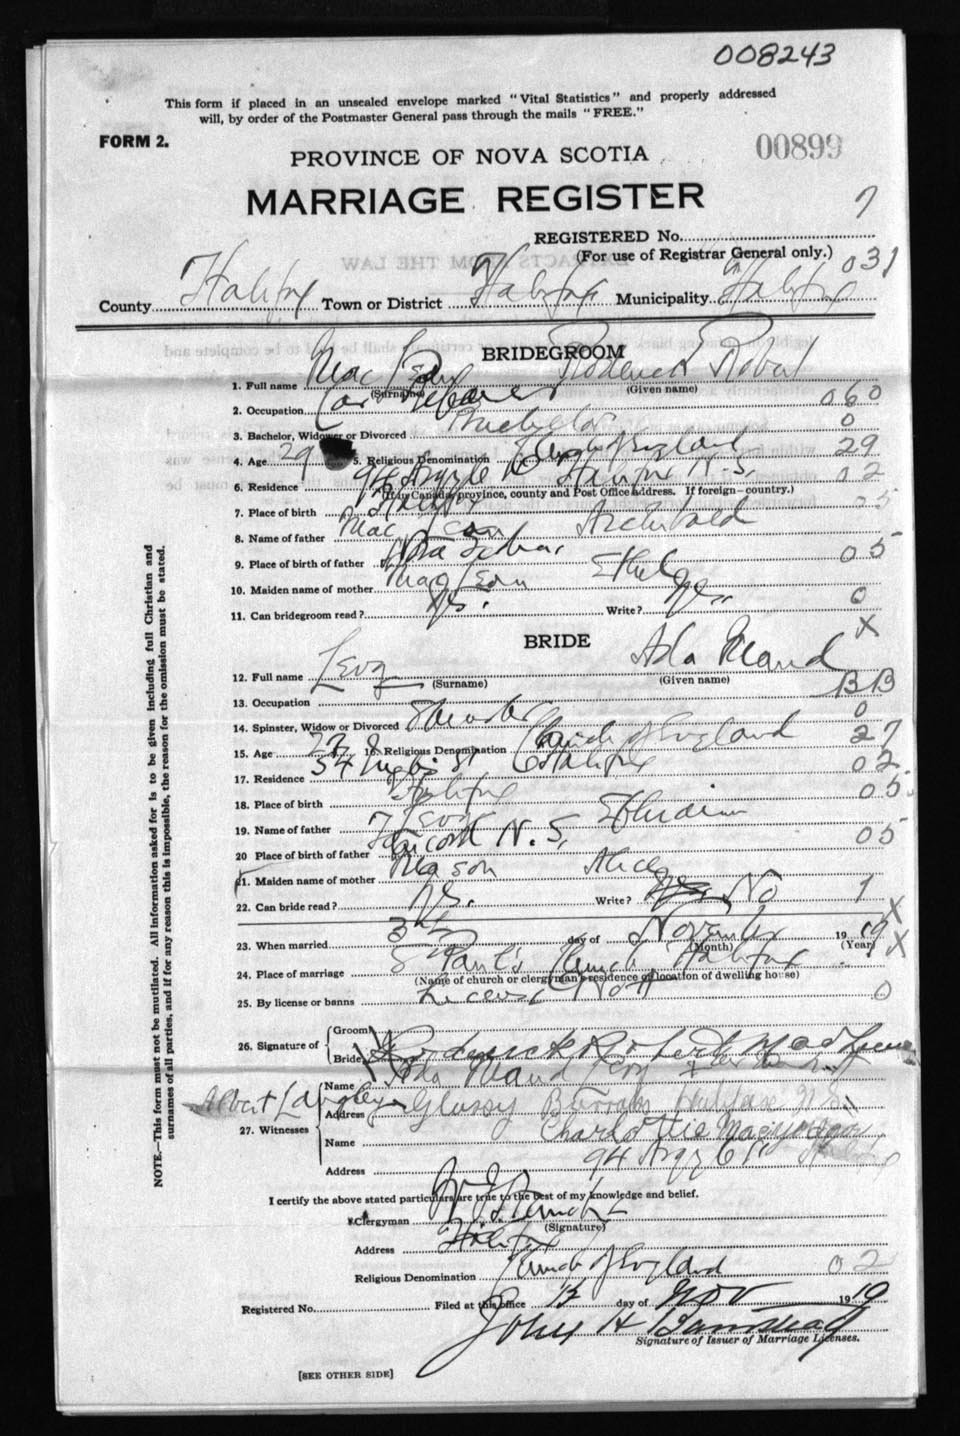 008243
This form if placed in an unsealed envelope marked "Vital Statistics" and properly addressed
will, by order of the Postmaster General pass through the mails "FREE."
FORM 2.
PROVINCE OF NOVA SCOTIA
00899
MARRIAGE REGISTER
7
REGISTERED No.
(For use of Registrar General only.)
031
County Halifax Town or District Halifax Municipality Halifax
BRIDEGROOM
1. Full name Mac Roderick Robert
(Surname) (Given name)
2. Occupation Car 060
3. Bachelor, Widower or Divorced Bachelor 0
4. Age 29 5. Religious Denomination Church of England 29
6. Residence 94 Argyle Halifax N.S. 02
(If in Canada, province, county and Post Office address. If foreign—country.)
7. Place of birth Halifax 05
8. Name of father Mac Archibald
9. Place of birth of father Nova Scotia 05
10. Maiden name of mother Ethel
11. Can bridegroom read? Yes. Write? Yes 0
X
BRIDE
12. Full name Levy Ada Maud
(Surname) (Given name)
13. Occupation BB
14. Spinster, Widow or Divorced Spinster 0
15. Age 27 16. Religious Denomination Church of England 27
17. Residence 54 Inglis St Halifax 02
18. Place of birth Halifax 05
19. Name of father Levy Ephraim
20 Place of birth of father N.S. 05
21. Maiden name of mother Mason Alice
22. Can bride read? Yes. Write? No 1
X
23. When married 3rd day of November 1919
(Month) (Year) X
24. Place of marriage St Paul's Church Halifax
(Name of church or clergyman's residence or location of dwelling house)
25. By license or banns License 0
26. Signature of Groom Roderick Robert
Bride Ada Maud Levy X her mark
27. Witnesses Name Albert Langley
Address Halifax N.S.
Name Charlotte
Address 94 Argyle St Halifax
I certify the above stated particulars are true to the best of my knowledge and belief.
Clergyman
(Signature)
Address Halifax
Religious Denomination Church of England 02
Registered No. Filed at this office 12 day of Nov 1919
John H
Signature of Issuer of Marriage Licenses.
[SEE OTHER SIDE]
NOTE.—This form must not be mutilated. All information asked for is to be given including full Christian and
surnames of all parties, and if for any reason this is impossible, the reason for the omission must be stated.